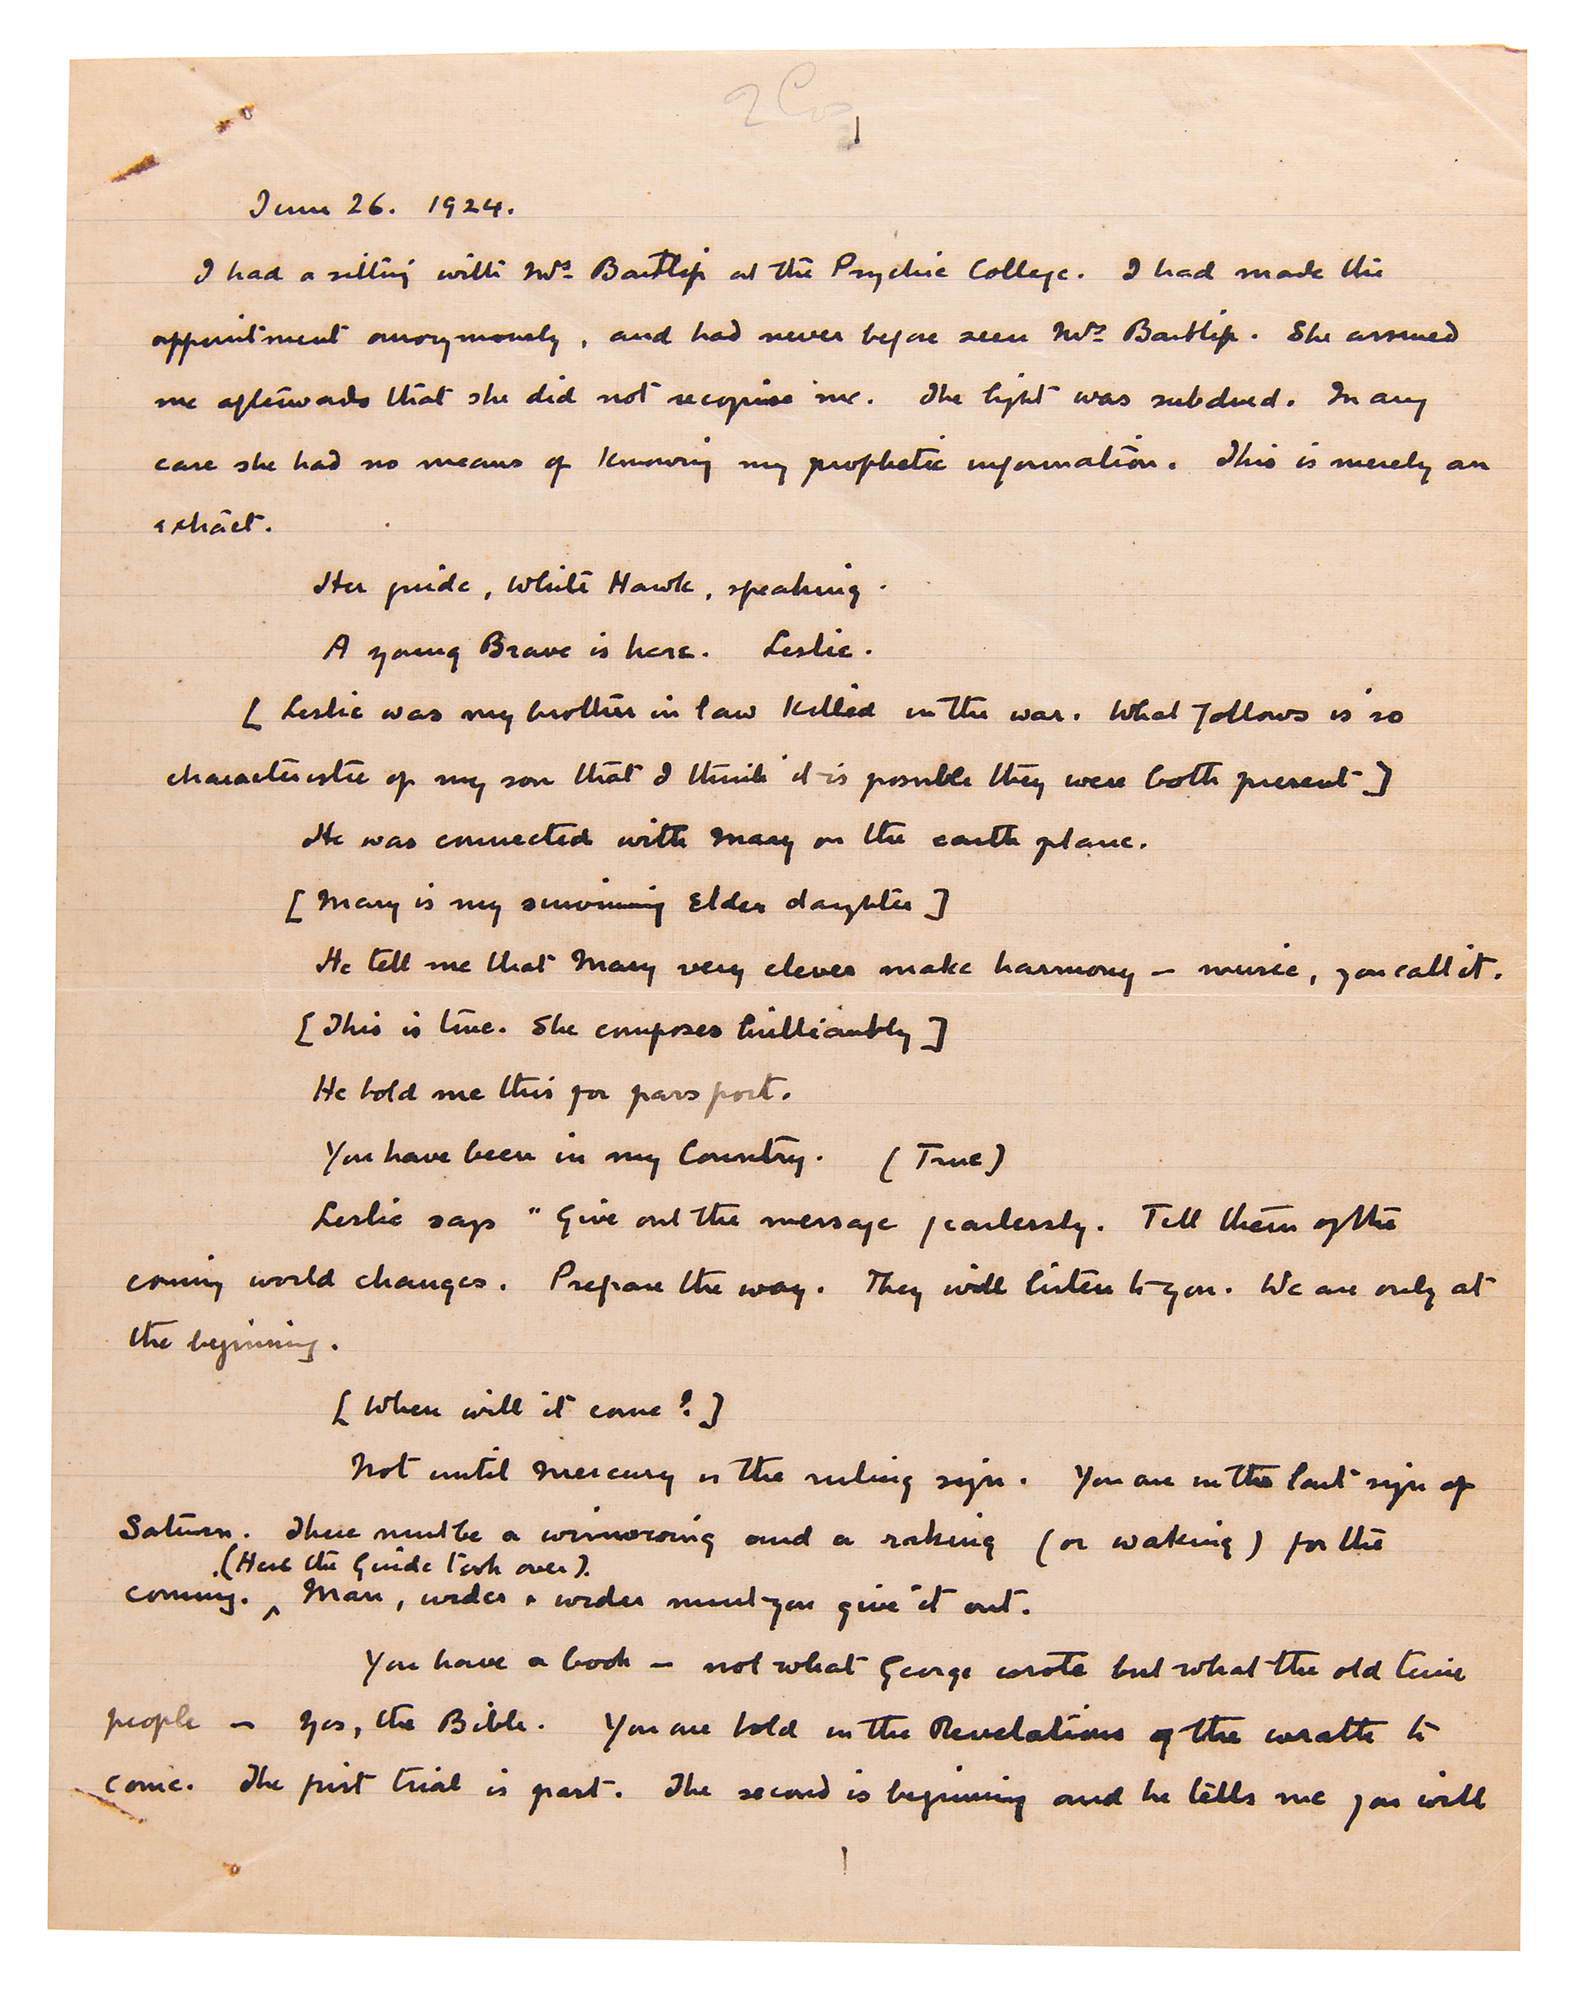 June 26. 1924.
I had a sitting with Mrs Bartlip at the Psychic College. I had made the
appointment anonymously, and had never before seen Mrs Bartlip. She assured
me afterwards that she did not recognise me. The light was subdued. In any
case she had no means of knowing my prophetic information. This is merely an
extract.
Her guide, White Hawk, speaking.
A young Brave is here. Leslie.
[ Leslie was my brother in law killed in the war. What follows is so
characteristic of my son that I think it is possible they were both present ]
He was connected with Mary on the earth plane.
[ Mary is my surviving Elder daughter ]
He tell me that Mary very clever make harmony — music, you call it.
[ This is true. She composes brilliantly ]
He told me this for passport.
You have been in my Country. ( True )
Leslie says " Give out the message fearlessly. Tell them of the
coming world changes. Prepare the way. They will listen to you. We are only at
the beginning.
[ When will it come? ]
Not until Mercury is the ruling sign. You are in the last sign of
Saturn. There must be a winnowing and a raking ( or waking ) for the
(Here the Guide took over).
coming. ^ Man, wider & wider must you give it out.
You have a book — not what George wrote but what the old time
people — yes, the Bible. You are told in the Revelations of the wrath to
come. The first trial is past. The second is beginning and he tells me you will